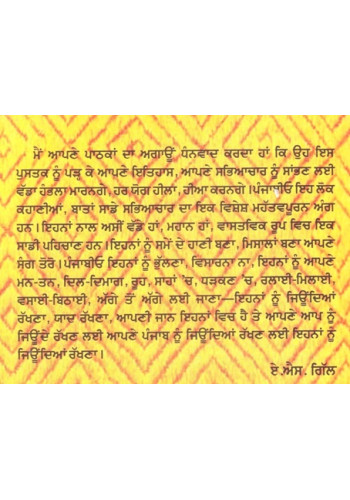 ਮੈਂ ਆਪਣੇ ਪਾਠਕਾਂ ਦਾ ਅਗਾਊਂ ਧੰਨਵਾਦ ਕਰਦਾ ਹਾਂ ਕਿ ਉਹ ਇਸ
ਪੁਸਤਕ ਨੂੰ ਪੜ੍ਹ ਕੇ ਆਪਣੇ ਇਤਿਹਾਸ, ਆਪਣੇ ਸਭਿਆਚਾਰ ਨੂੰ ਸਾਂਭਣ ਲਈ
ਵੱਡਾ ਹੰਭਲਾ ਮਾਰਨਗੇ, ਹਰ ਯੋਗ ਹੀਲਾ, ਹੀਆ ਕਰਨਗੇ। ਪੰਜਾਬੀਓ ਇਹ ਲੋਕ
ਕਹਾਣੀਆਂ, ਬਾਤਾਂ ਸਾਡੇ ਸਭਿਆਚਾਰ ਦਾ ਇਕ ਵਿਸ਼ੇਸ਼ ਮਹੱਤਵਪੂਰਨ ਅੰਗ
ਹਨ। ਇਹਨਾਂ ਨਾਲ ਅਸੀਂ ਵੱਡੇ ਹਾਂ, ਮਹਾਨ ਹਾਂ, ਵਾਸਤਵਿਕ ਰੂਪ ਵਿਚ ਇਕ
ਸਾਡੀ ਪਹਿਚਾਣ ਹਨ। ਇਹਨਾਂ ਨੂੰ ਸਮੇਂ ਦੇ ਹਾਣੀ ਬਣਾ, ਮਿਸਾਲਾਂ ਬਣਾ ਆਪਣੇ
ਸੰਗ ਤੋਰੋ। ਪੰਜਾਬੀਓ ਇਹਨਾਂ ਨੂੰ ਭੁੱਲਣਾ, ਵਿਸਾਰਨਾ ਨਾ, ਇਹਨਾਂ ਨੂੰ ਆਪਣੇ
ਮਨ-ਤਨ, ਦਿਲ-ਦਿਮਾਗ, ਰੂਹ, ਸਾਹਾਂ 'ਚ, ਧੜਕਣ 'ਚ, ਰਲਾਈ-ਮਿਲਾਈ,
ਵਸਾਈ-ਬਿਠਾਈ, ਅੱਗੇ ਤੋਂ ਅੱਗੇ ਲਈ ਜਾਣਾ—ਇਹਨਾਂ ਨੂੰ ਜਿਊਂਦਿਆਂ
ਰੱਖਣਾ, ਯਾਦ ਰੱਖਣਾ, ਆਪਣੀ ਜਾਨ ਇਹਨਾਂ ਵਿਚ ਹੈ ਤੇ ਆਪਣੇ ਆਪ ਨੂੰ
ਜਿਊਂਦੇ ਰੱਖਣ ਲਈ ਆਪਣੇ ਪੰਜਾਬ ਨੂੰ ਜਿਊਂਦਿਆਂ ਰੱਖਣ ਲਈ ਇਹਨਾਂ ਨੂੰ
ਜਿਊਂਦਿਆਂ ਰੱਖਣਾ।
ਏ.ਐਸ. ਗਿੱਲ